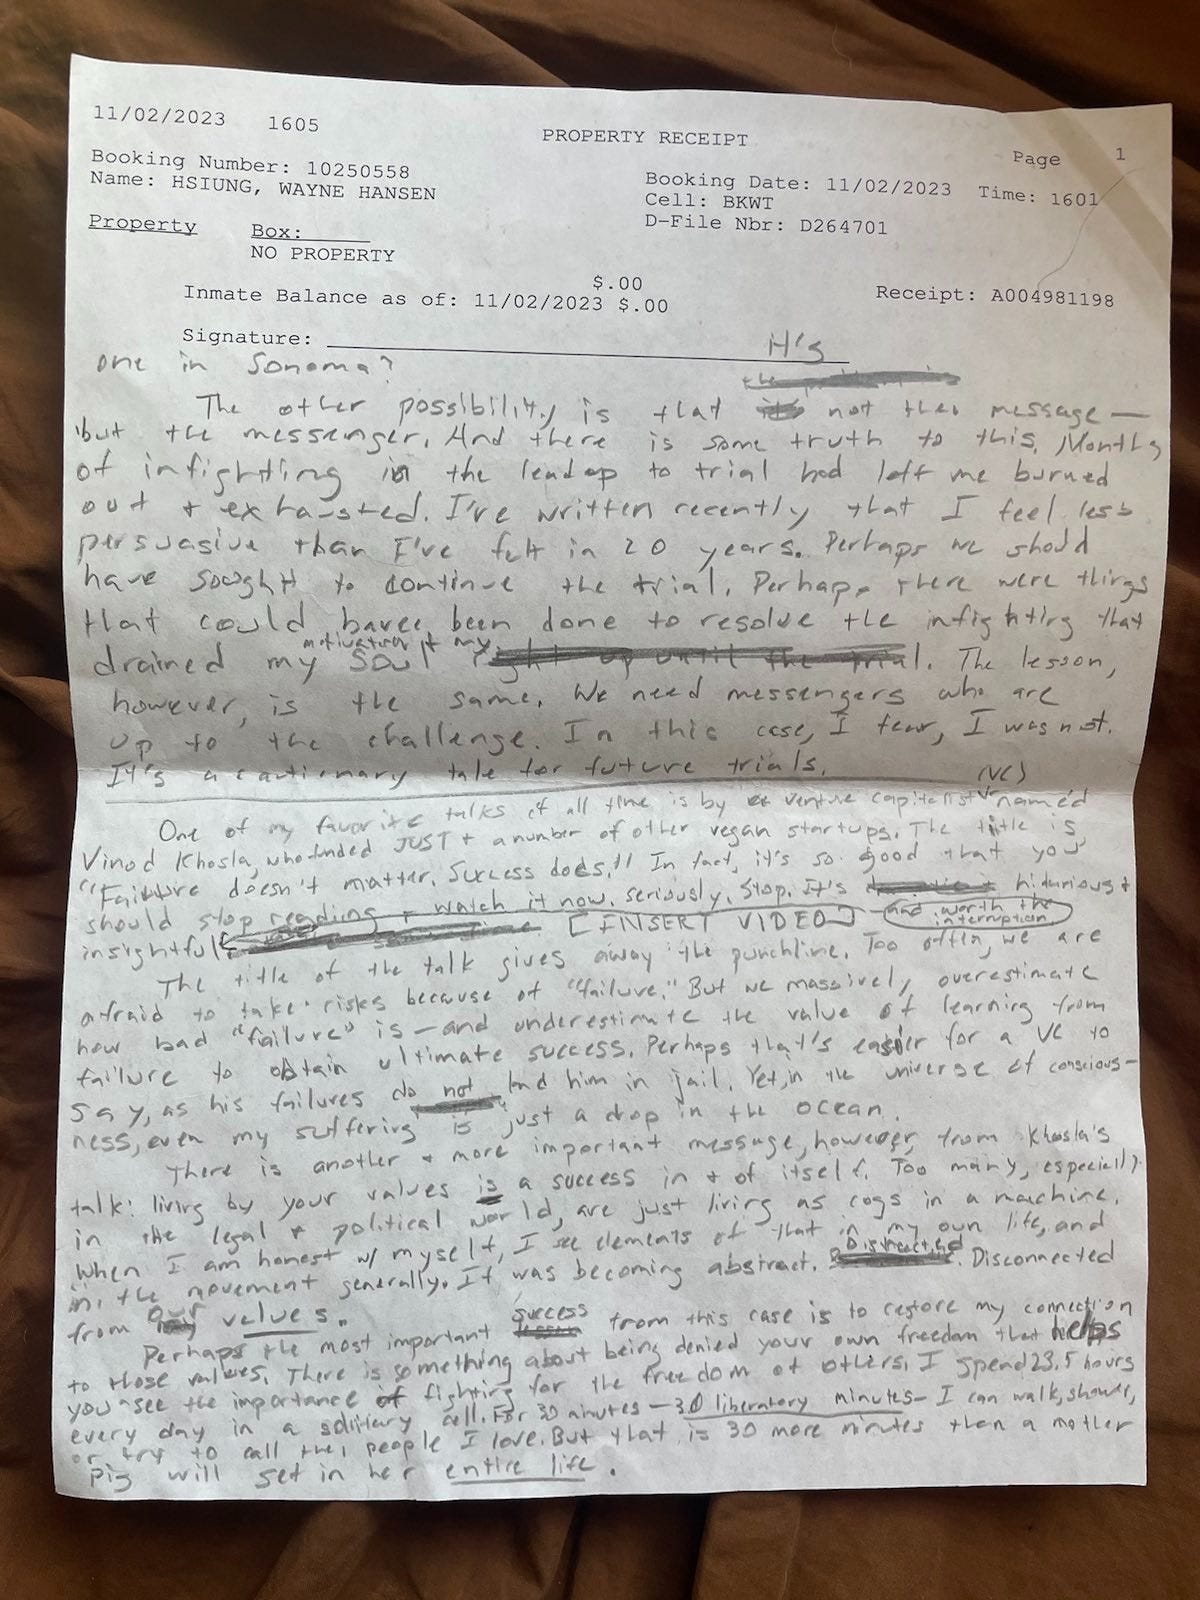 11/02/2023 1605
PROPERTY RECEIPT
Page 1
Booking Number: 10250558
Name: HSIUNG, WAYNE HANSEN
Booking Date: 11/02/2023 Time: 1601
Cell: BKWT
D-File Nbr: D264701
Property Box:
NO PROPERTY
$.00
Inmate Balance as of: 11/02/2023 $.00
Receipt: A004981198
Signature:
one in Sonoma?
It's
The other possibility is that not the message—
but the messenger. And there is some truth to this. Months
of infighting in the leadup to trial had left me burned
out + exhausted. I've written recently that I feel less
persuasive than I've felt in 20 years. Perhaps we should
have sought to continue the trial. Perhaps there were things
that could have been done to resolve the infighting that
drained my motivation + my soul. The lesson,
however, is the same. We need messengers who are
up to the challenge. In this case, I fear, I was not.
It's a cautionary tale for future trials.
One of my favorite talks of all time is by a venture capitalist (VC) named
Vinod Khosla, who funded JUST + a number of other vegan startups. The title is
"Failure doesn't matter. Success does." In fact, it's so good that you
should stop reading + watch it now. seriously. Stop. It's hilarious +
insightful [INSERT VIDEO] and worth the interruption
The title of the talk gives away the punchline. Too often, we are
afraid to take risks because of "failure." But we massively overestimate
how bad "failure" is — and underestimate the value of learning from
failure to obtain ultimate success. Perhaps that's easier for a VC to
say, as his failures do not land him in jail. Yet, in the universe of conscious-
ness, even my suffering is just a drop in the ocean.
There is another + more important message, however, from Khosla's
talk: living by your values is a success in + of itself. Too many, especially
in the legal + political world, are just living as cogs in a machine.
When I am honest w/ myself, I see elements of that in my own life, and
in the movement generally. It was becoming abstract. Disconnected
from our values.
Perhaps the most important success from this case is to restore my connection
to those values. There is something about being denied your own freedom that helps
you see the importance of fighting for the freedom of others. I spend 23.5 hours
every day in a solitary cell. For 30 minutes — 30 liberatory minutes — I can walk, shower,
or try to call the people I love. But that is 30 more minutes than a mother
pig will get in her entire life.